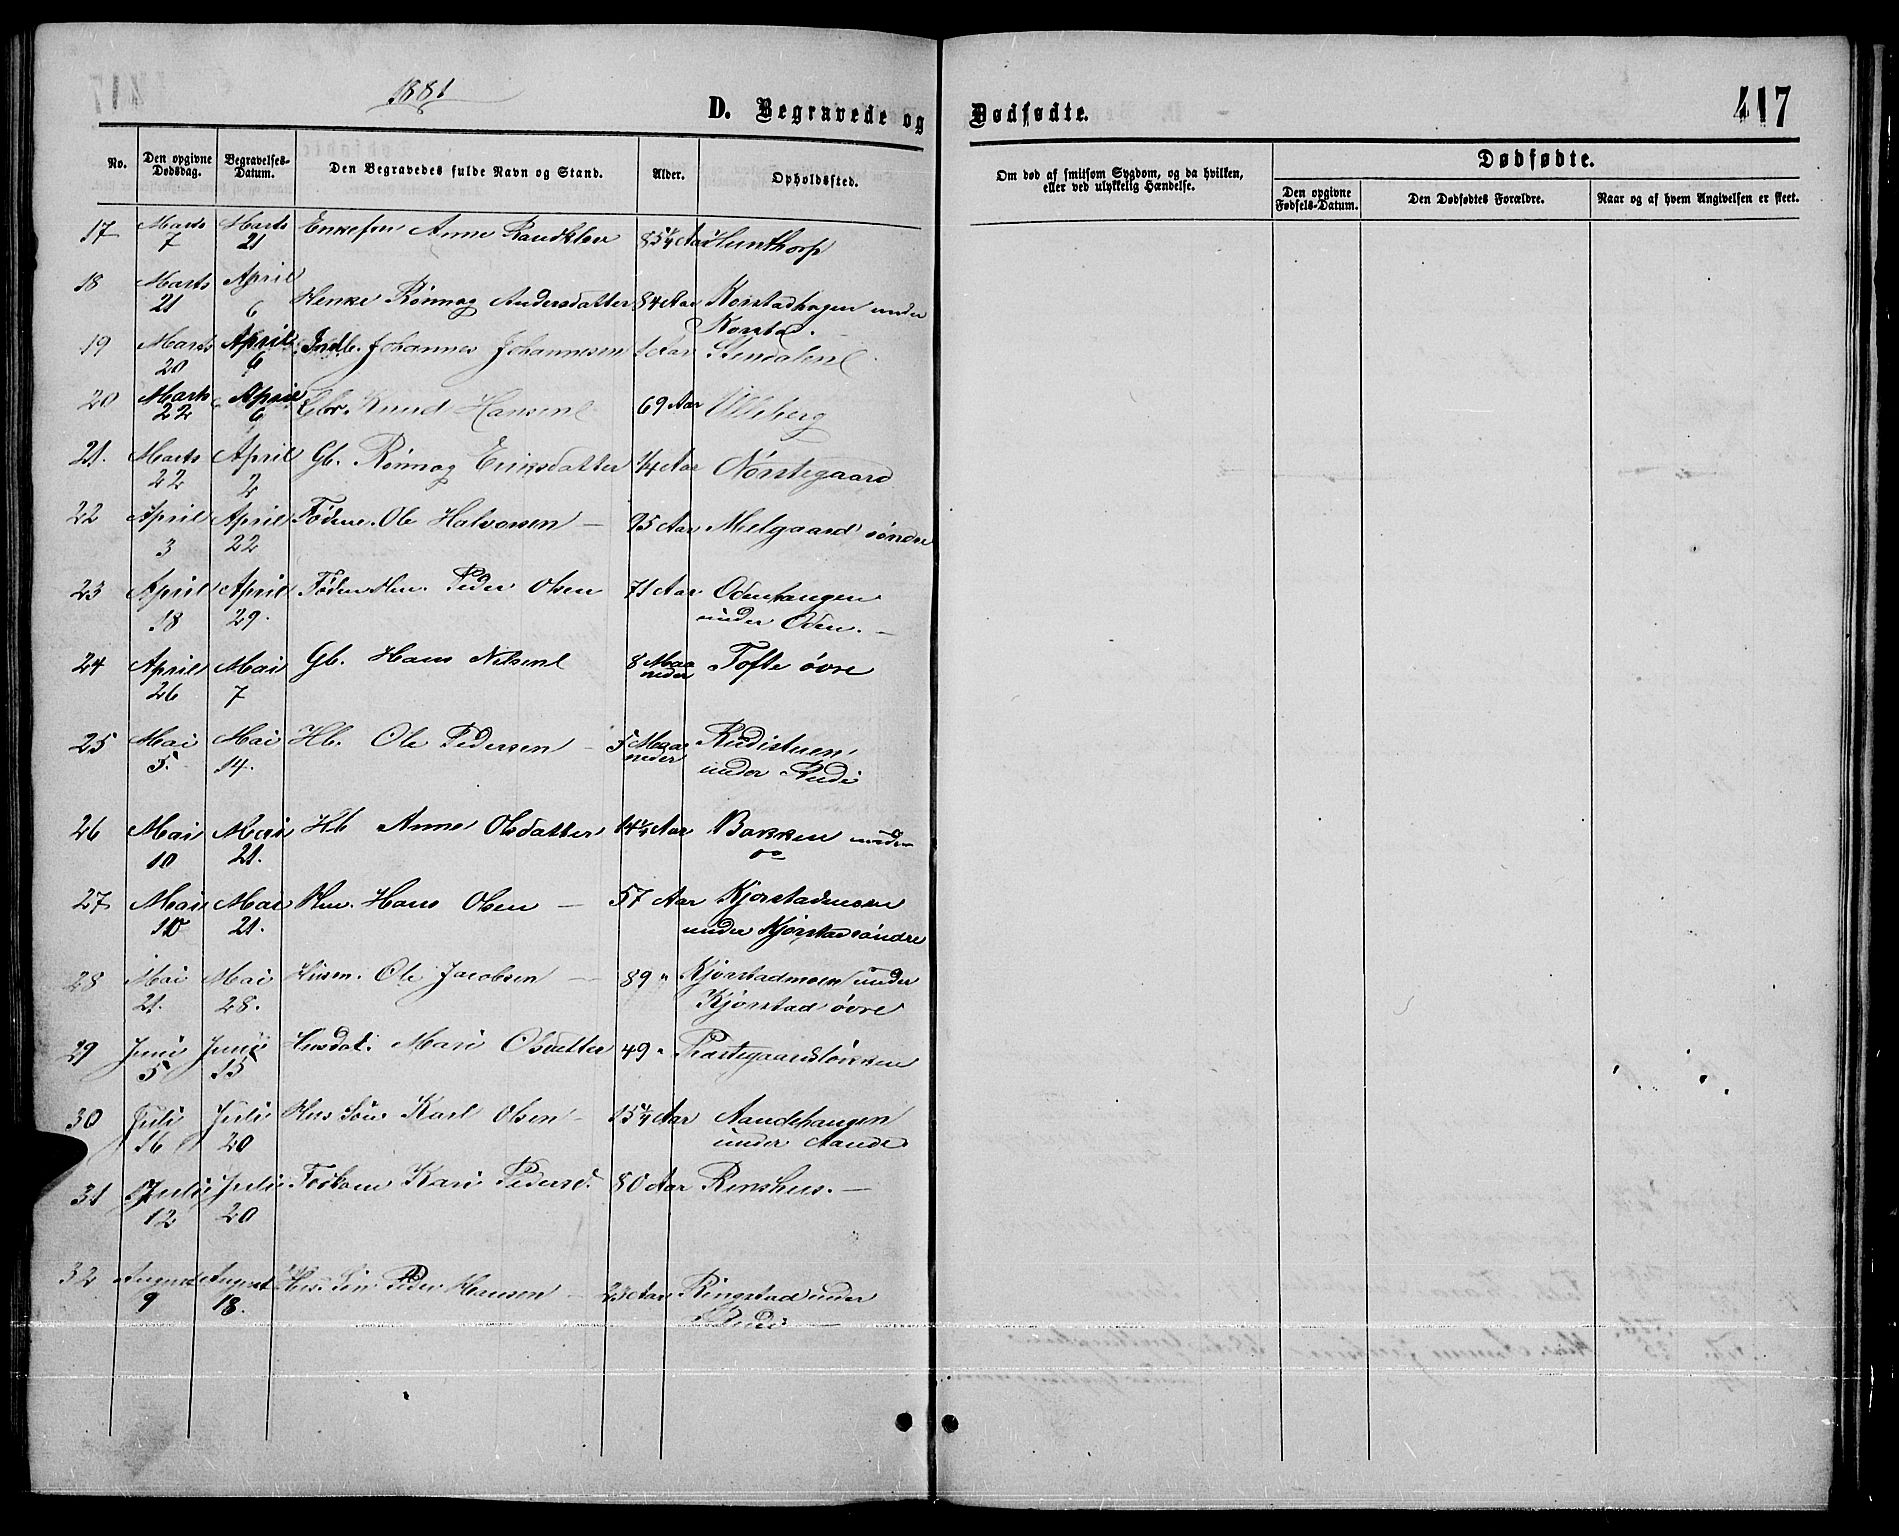 1881
D. Begravede og Dødfødte. 417
No. Den opgivne Dødsdag. Begravelses-Datum. Den Begravedes fulde Navn og Stand. Alder. Opholdssted. Om død af smitsom Sygdom, og da hvilken, eller ved ulykkelig Hændelse. Dødfødte.
Den opgivne Fødsels-Datum. Den Dødfødtes Forældre. Naar og af hvem Angivelsen er skeet.
17 Marts 7 Marts 21 Enkefru Anne Randklev 85 1/4 Aar Hunthorp
18 Marts 21 April 6 Henke Rønnog Andersdatter 84 Aar Korstadhagen under
Korstad.
19 Marts 20 April 6 Indb. Johannes Johannesen 1 Aar
20 Marts 22 April 6 Gbr. Knud Hansen 69 Aar Ulleberg
21. Marts 22 April 2 Gb. Rønnog Eriksdatter 1/4 Aar Nørstegaard
22 April 3 April 22 Føder. Ole Halvorsen — 95 Aar Melgaard søndre
23 April 18 April 29. Peder Olsen 71 Aar Odenhaugen
under Oden. —
24 April 26 Mai 7 Gb. Hans Nilsen 8 Maaneder Tofte øvre
25 Mai 5. Mai 14. Hb. Ole Pedersen — 5 Maaneder Rudistuen
under Rudi
26 Mai 10 Mai 21. Hb Anne Olsdatter 14 1/2 Aar Bakken under
27 Mai 10 Mai 21. Hm. Hans Olsen — 57 Aar Kjorstadmoen
under Kjørstad søndre
28 Mai 21. Mai 28. Husm. Ole Jacobsen — 89 " Kjorstadmoen under
Kjørstad øvre
29 Juni 5 Juni 15 Husdat. Mari Olsdatter 49 " Prestegaardsløkken
30 Juli 16 Juli 20 Hus Søn Karl Olsen — 15 1/4 Aar Aandehaugen
under Aande
31 Juli 12 Juli 20 Kari Pedersd. 80 Aar Renshus. —
32 August 9 August 18. Hus. Søn Peder Hansen — 23 Aar Ringstad under
Rudi —